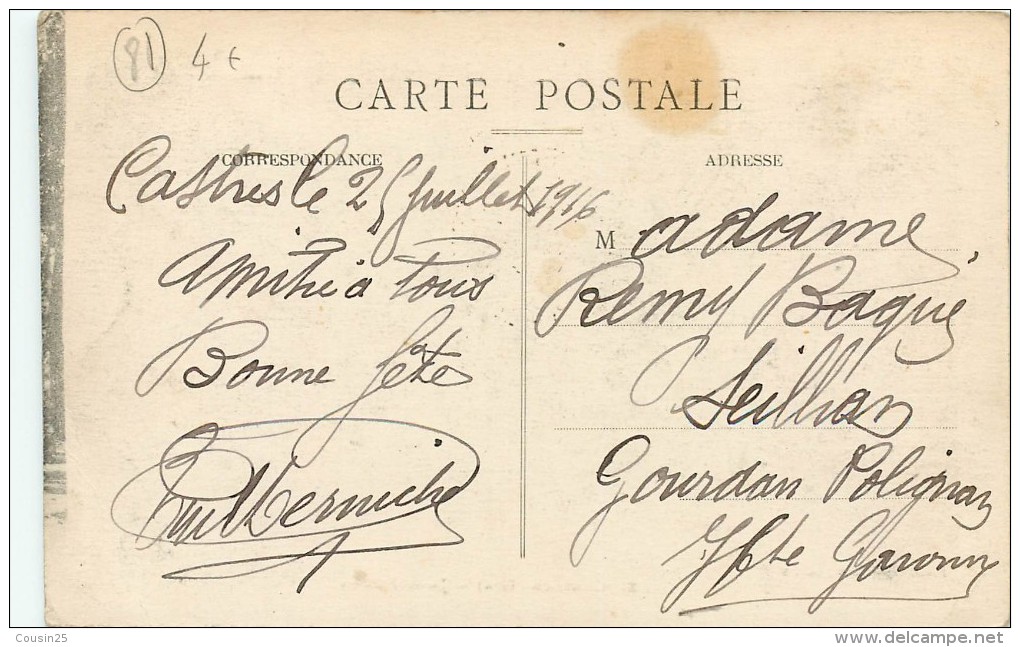 81
4 €
CARTE POSTALE
CORRESPONDANCE
Castres le 25 Juillet 1916
Amitié a tous
Bonne fête
ADRESSE
Madame
Remy Baqué
Seilhan
Gourdan Polignan
Hte Garonne
Cousin25
www.delcampe.net